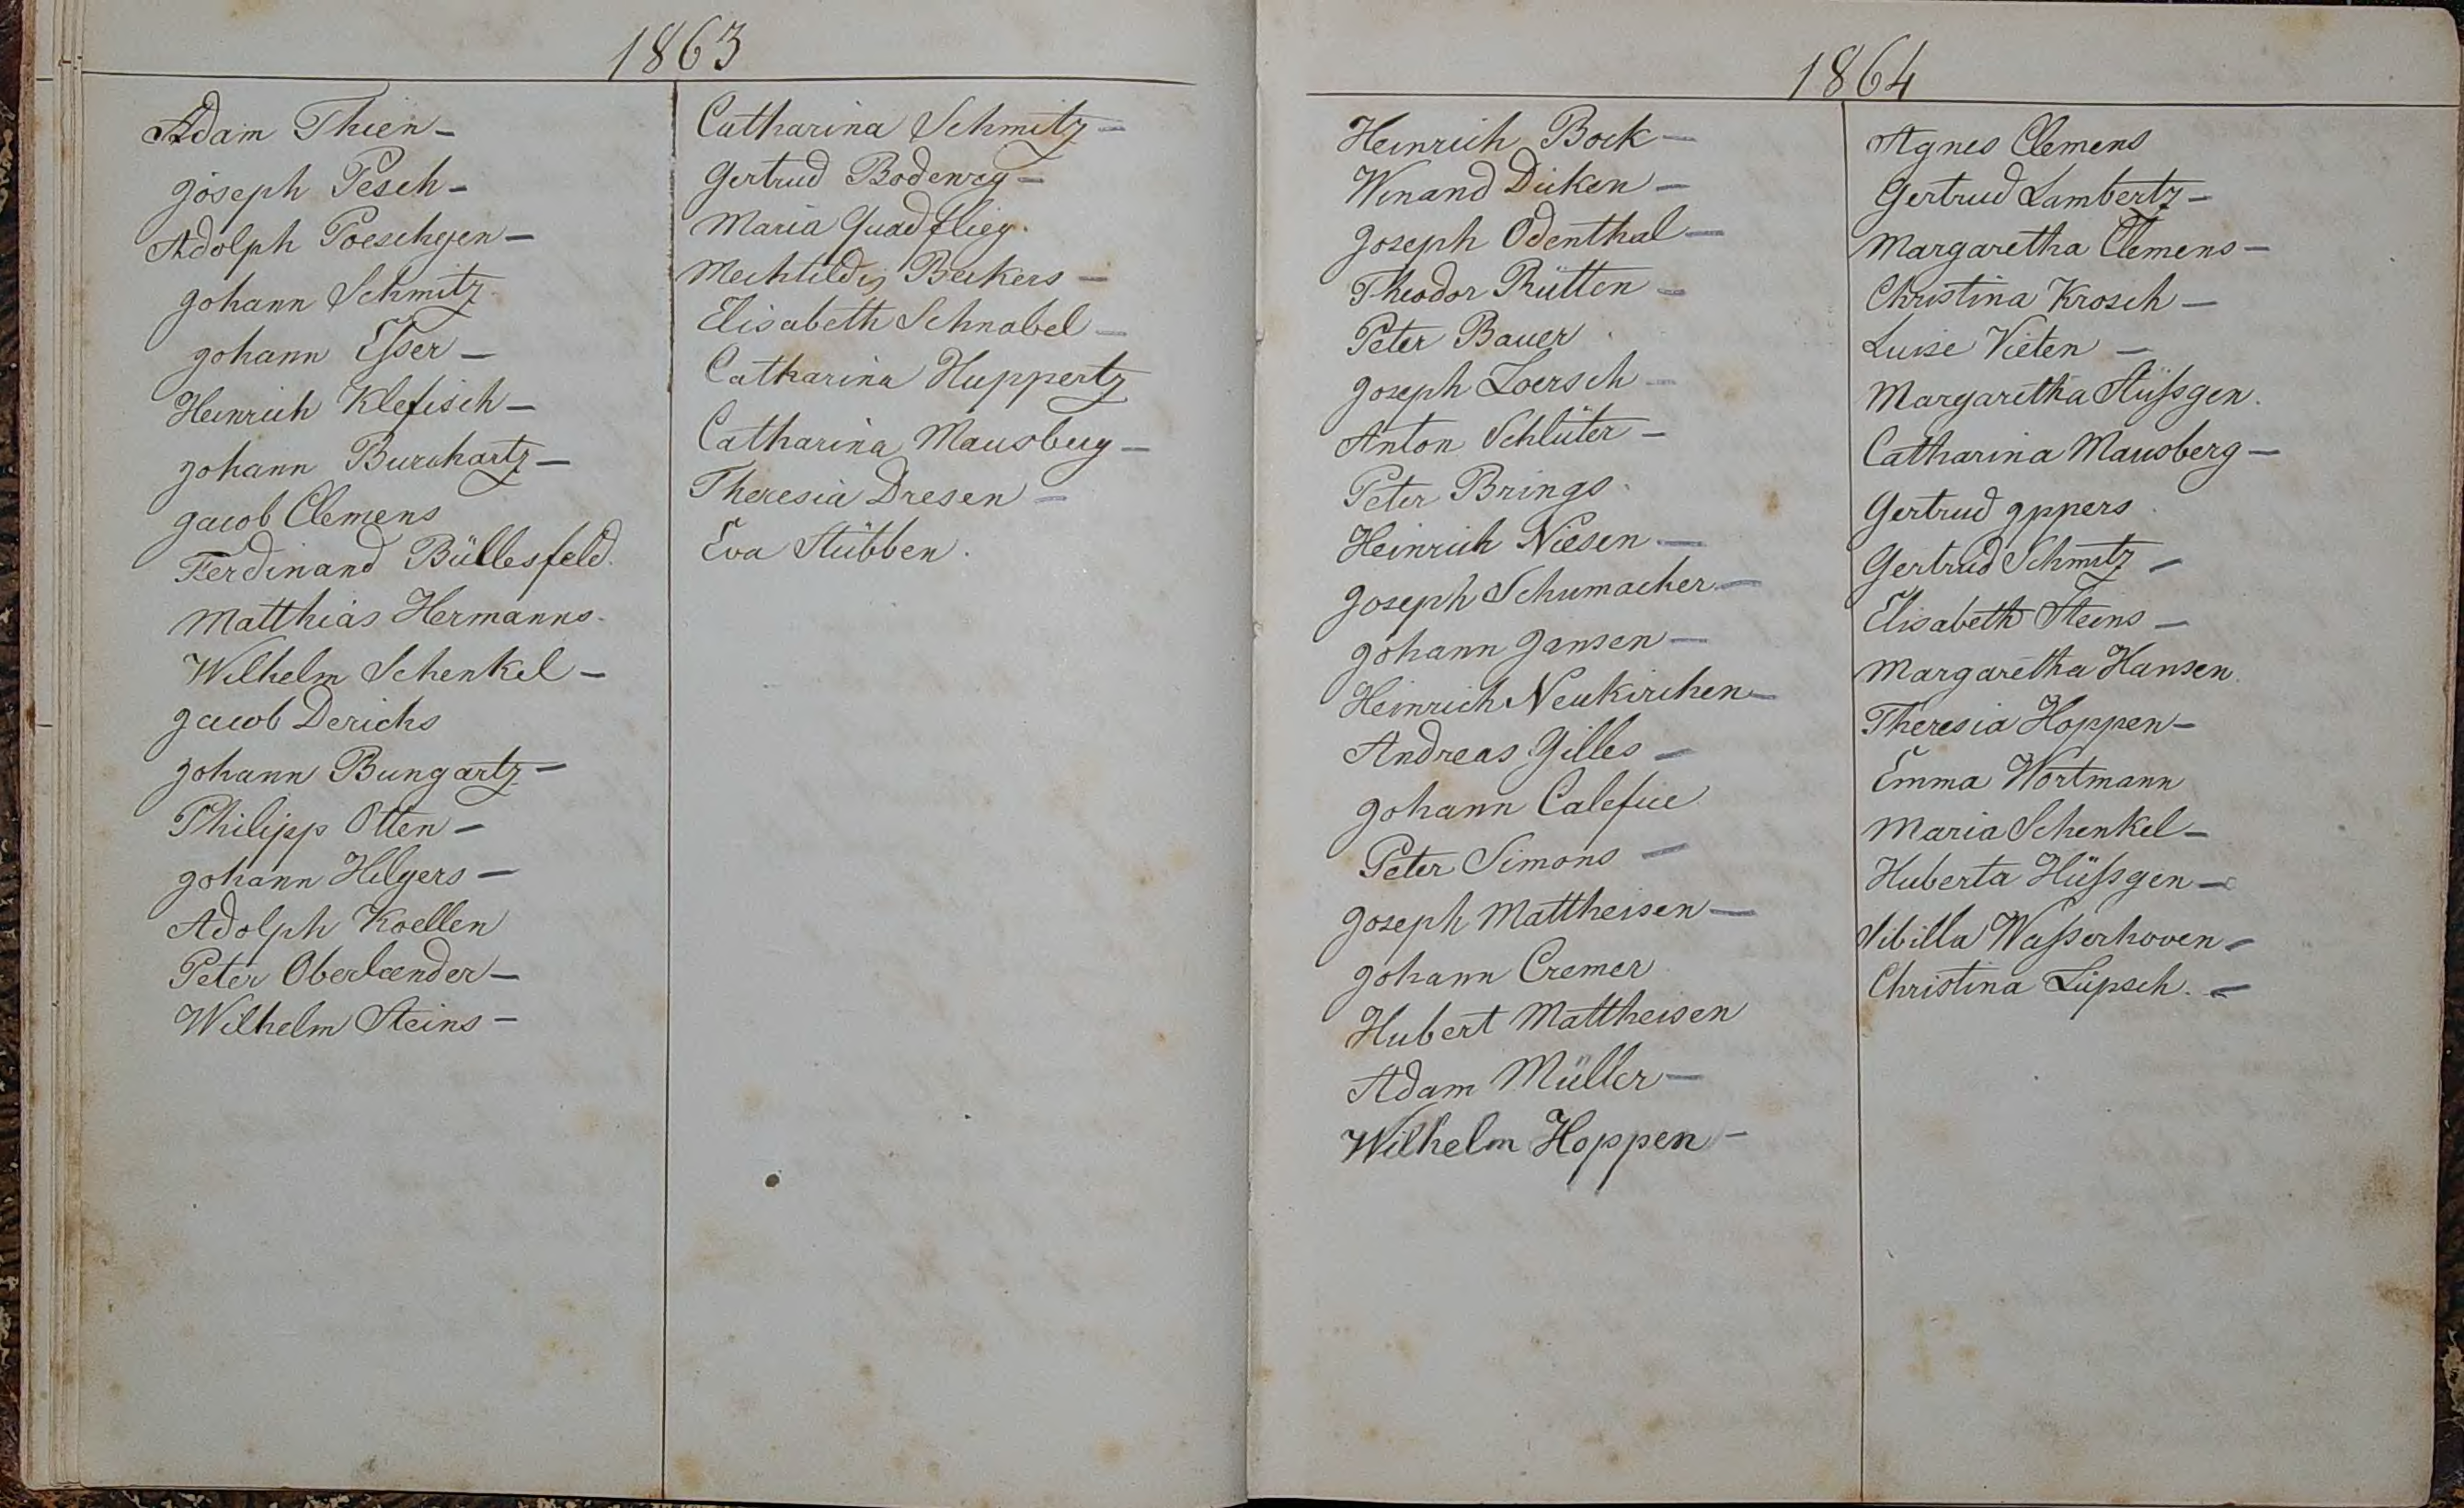 1863
Adam Thien -
Joseph Pesch -
Adolph Poeschgen -
Johann Schmitz.
Johann Esser -
Heinrich Klefisch -
Johann Burghartz -
Jacob Clemens
Ferdinand Büllesfeld.
Matthias Hermanns.
Wilhelm Schenkel -
Jacob Derichs
Johann Bungartz -
Philipp Otten -
Johann Hilgers -
Adolph Koellen
Peter Oberlaender -
Wilhelm Steins -
Catharina Schmitz -
Gertrud Bodewig -
Maria Quadflieg.
Mechtildis Beckers -
Elisabeth Schnabel -
Catharina Huppertz
Catharina Mausberg -
Theresia Dresen -
Eva Stübben.
1864
Heinrich Bock -
Winand Dücken -
Joseph Odenthal -
Theodor Rütten -
Peter Bauer
Joseph Loersch -
Anton Schlüter -
Peter Brings.
Heinrich Niesen -
Joseph Schumacher -
Johann Jansen -
Heinrich Neukirchen -
Andreas Gilles -
Johann Calefice
Peter Simons -
Joseph Mattheisen -
Johann Cremer
Hubert Mattheisen
Adam Müller -
Wilhelm Hoppen -
Agnes Clemens
Gertrud Lambertz -
Margaretha Clemens -
Christina Krosch -
Luise Vieten -
Margaretha Stüßgen.
Catharina Mausberg -
Gertrud Ippers
Gertrud Schmitz -
Elisabeth Steins -
Margaretha Hansen.
Theresia Hoppen -
Emma Wortmann
Maria Schenkel -
Huberta Hüßgen -
Sibilla Waßerhoven -
Christina Lüpsch. -